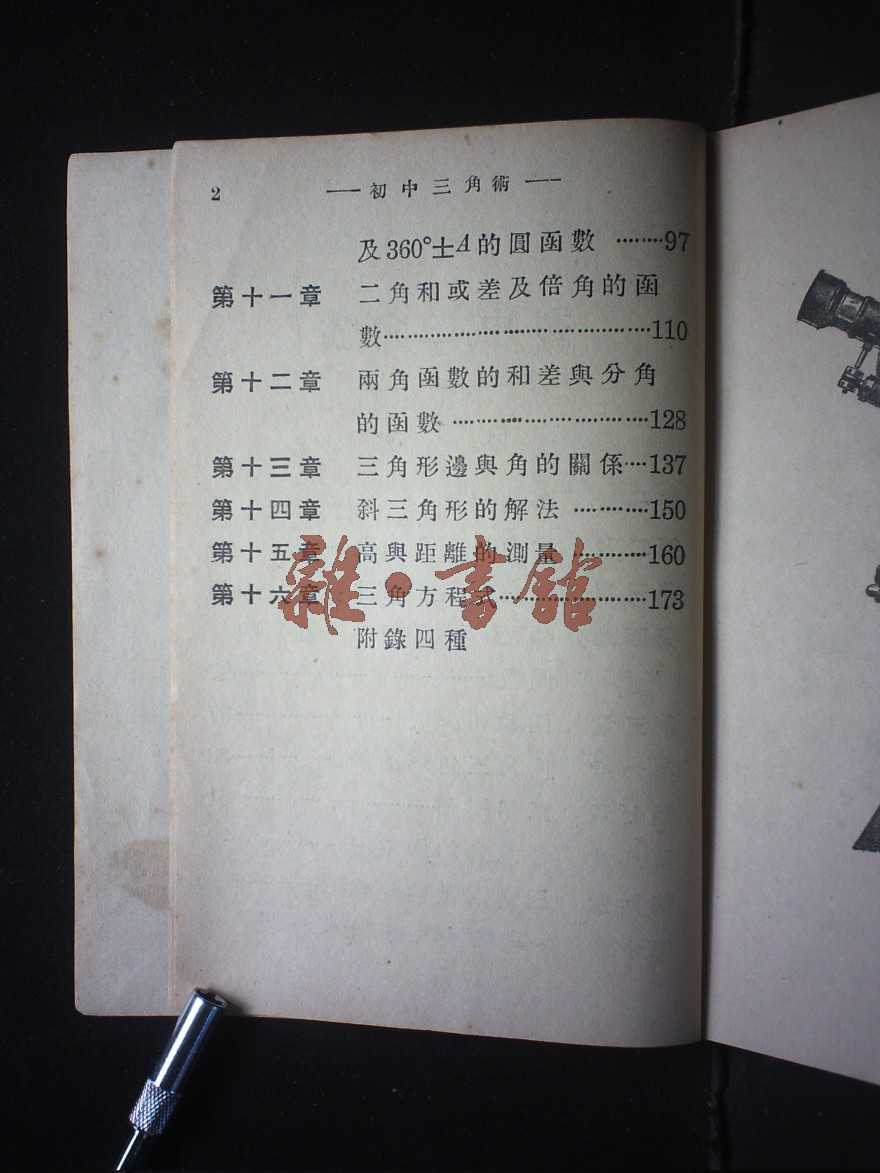 2 ——初中三角術——
及360°±A的圓函數 ········97
第十一章 二角和或差及倍角的函
數·······································110
第十二章 兩角函數的和差與分角
的函數 ····························128
第十三章 三角形邊與角的關係····137
第十四章 斜三角形的解法 ···········150
第十五章 高與距離的測量 ···········160
第十六章 三角方程式······················173
附錄四種
雜·書館